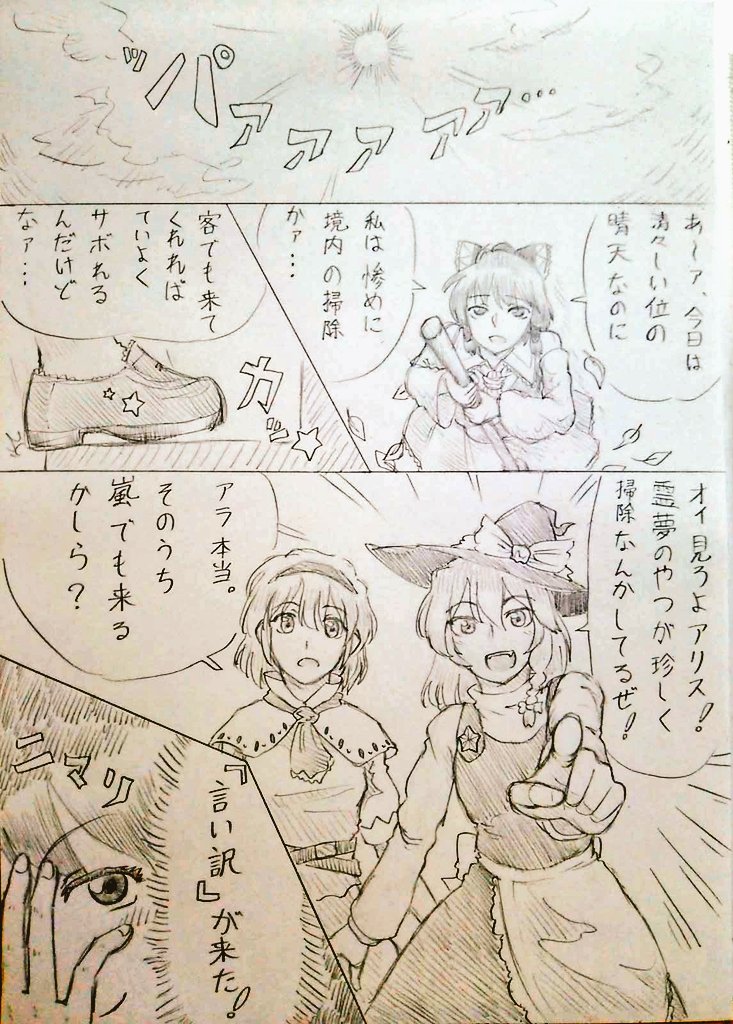 ッパァァァァァ…
あ〜ァ、今日は
清々しい位の
晴天なのに
私は惨めに
境内の掃除
かァ…
客でも来て
くれれば
ていよく
サボれる
んだけど
なァ…
カッ☆
オイ見ろよアリス!
霊夢のやつが珍しく
掃除なんかしてるぜ!
アラ本当。
そのうち
嵐でも来る
かしら?
ニマリ
『言い訳』が来た!